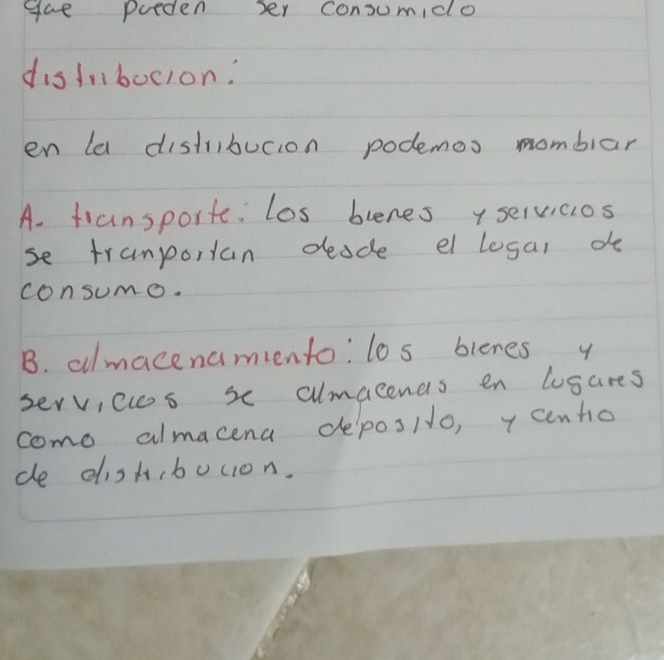 que pueden ser consumido
distribucion:
en la distribucion podemos mombrar
A. transporte: los bienes y servicios
se tranportan desde el lugar de
consumo.
B. almacenamiento: los bienes y
servicios se almacenas en lugares
como almacena deposito, y centro
de distribucion.